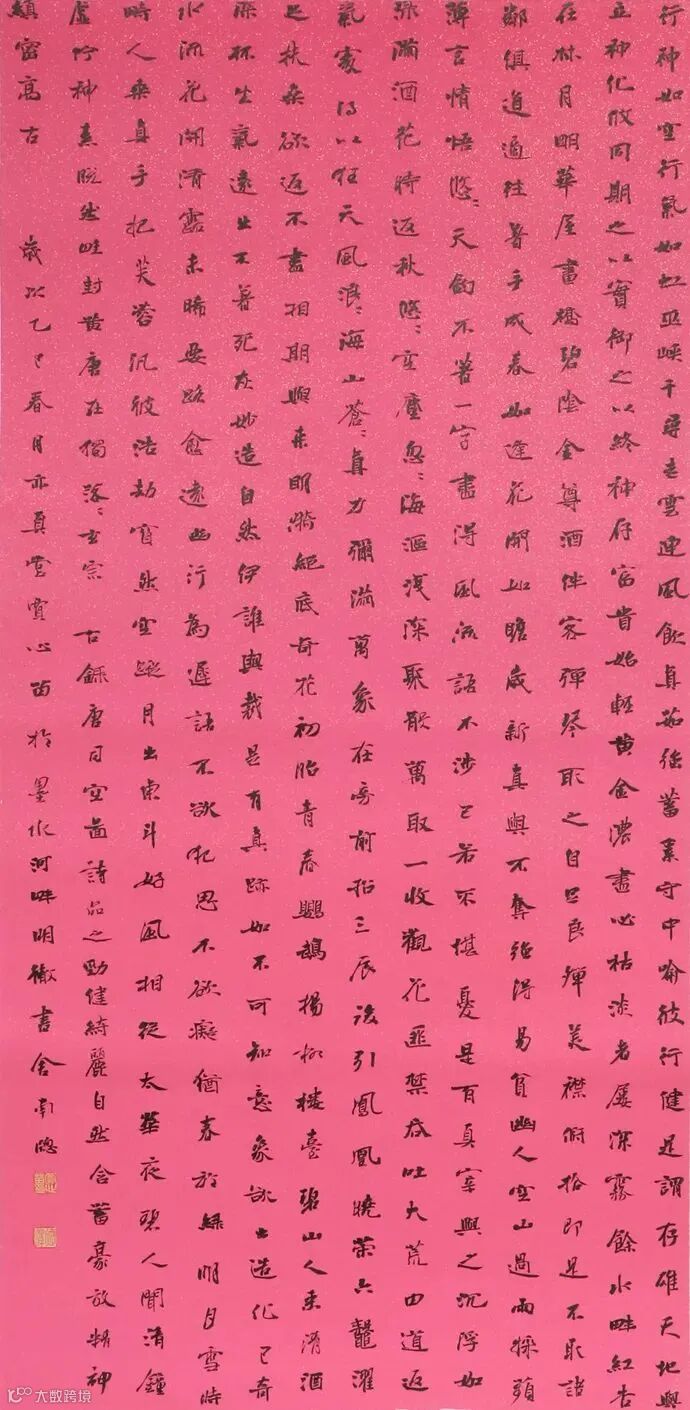 行神如空行氣如虹巫峽千尋走雲連風飲真茹強蓄素守中喻彼行健是謂存雄天地與
立神化攸同期之以實御之以終神存富貴始輕黃金濃盡必枯淡者屢深霧餘水畔紅杏
在林月明華屋畫橋碧陰金尊酒伴客彈琴取之自足良殫美襟俯拾即是不取諸
鄰俱道適往著手成春如逢花開如瞻歲新真與不奪強得易貧幽人空山過雨採蘋
薄言情悟悠〻天鈞不著一字盡得風流語不涉己若不堪憂是有真宰與之沉浮如
淥滿酒花時返秋悠〻空塵忽〻海漚淺深聚散萬取一收觀花匪禁吞吐大荒由道返
氣處得以狂天風浪〻海山蒼〻真力彌滿萬象在旁前招三辰後引鳳凰曉策六鼇濯
足扶桑欲返不盡相期與來明漪絕底奇花初胎青春鸚鵡楊柳樓臺碧山人來清酒
深杯生氣遠出不著死灰妙造自然伊誰與裁是有真跡如不可知意象欲出造化已奇
水流花開清露未晞要路愈遠幽行為遲語不欲犯思不欲癡猶春於綠明月雪時
時人乘真手把芙蓉汎彼浩劫窅然空蹤月出東斗好風相從太華夜碧人聞清鐘
虛佇神素脫然畦封黃唐在獨落〻玄宗 右録唐司空啚詩品之勁健綺麗自然含蓄豪放精神
縝密高古 歲次乙巳春月亦真堂賞心齋於墨水河畔明徹書舍南聰
大数跨境